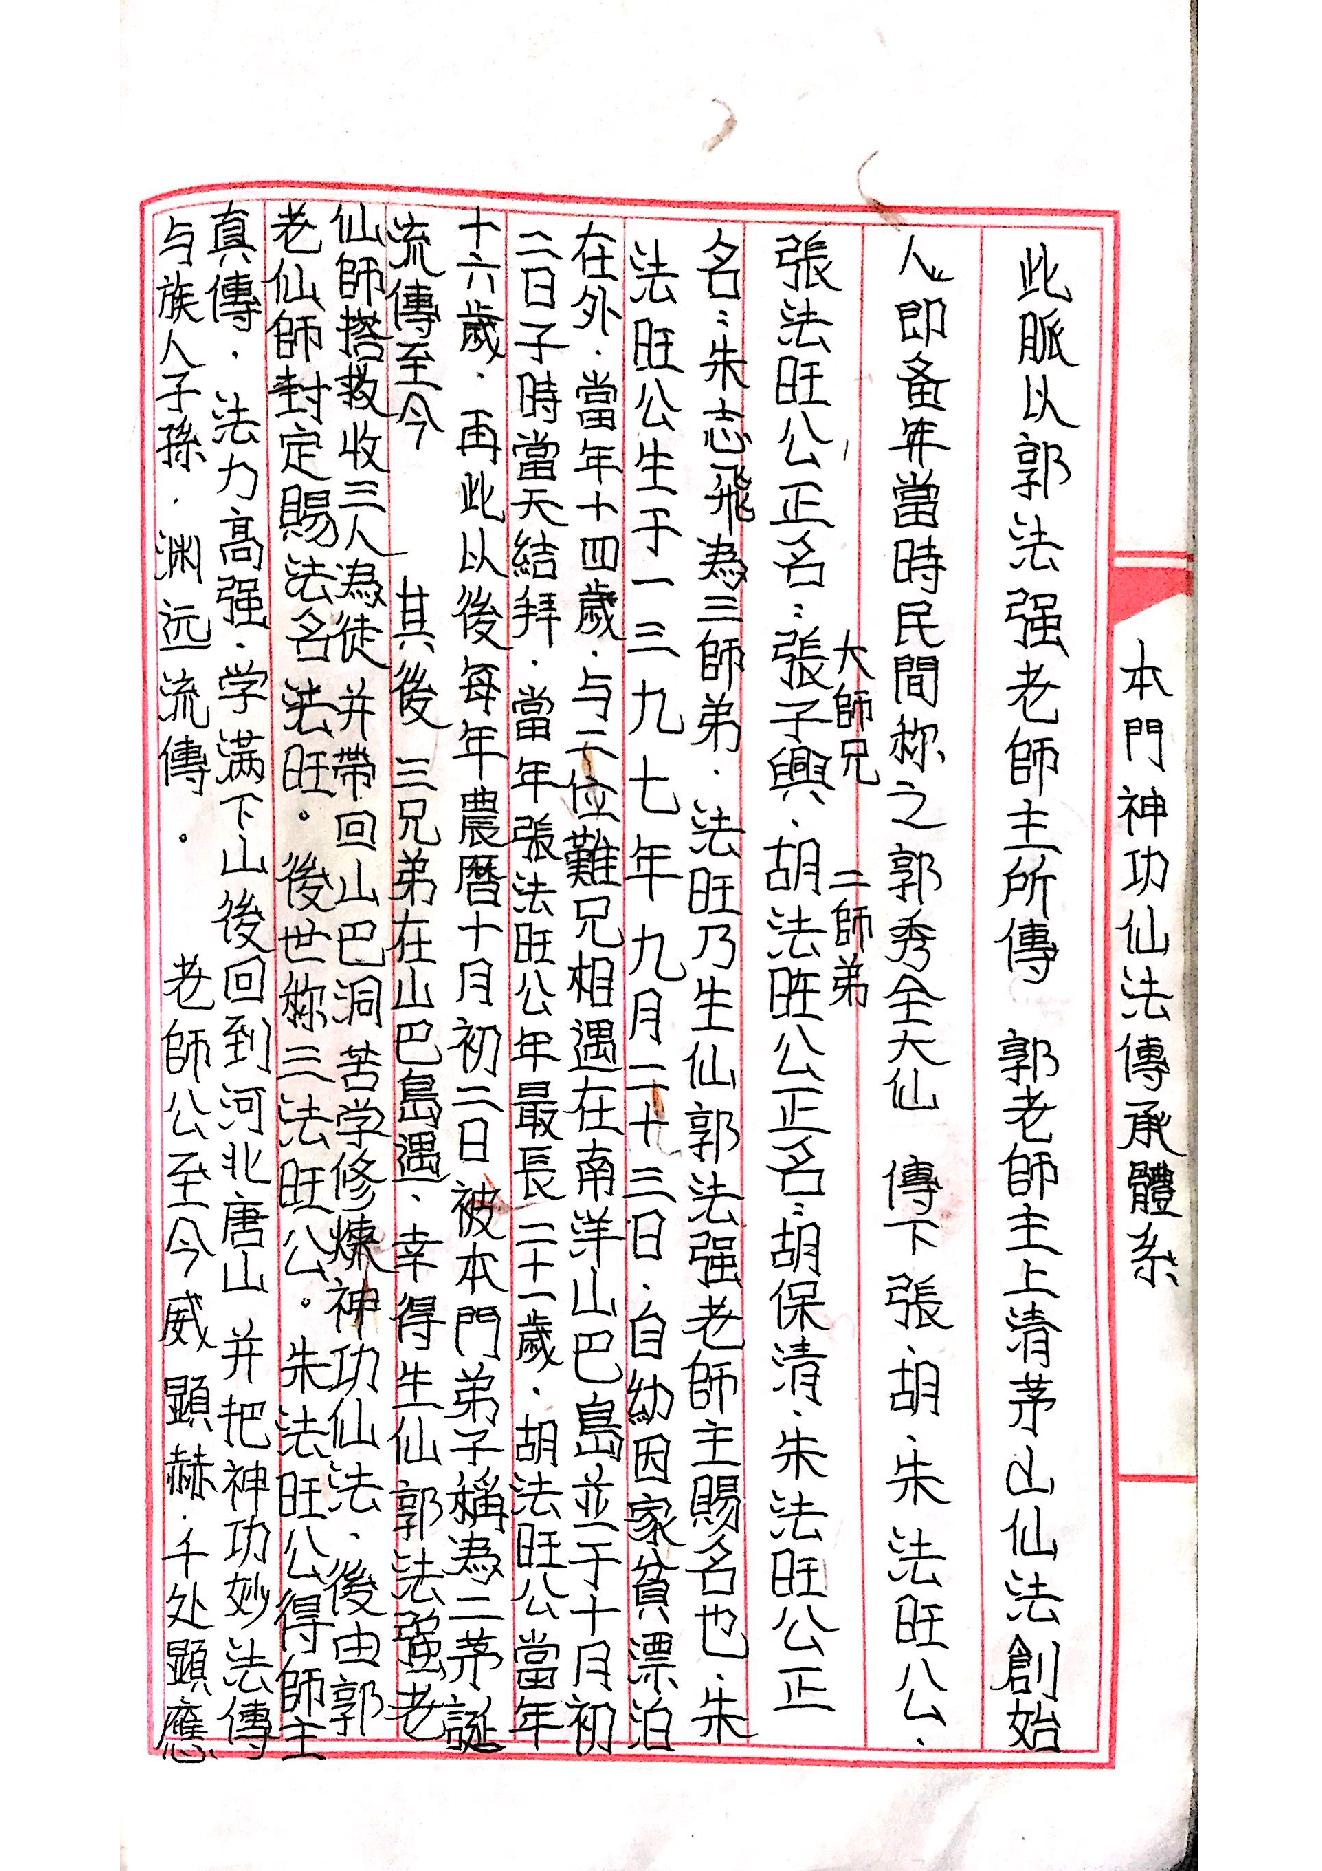 本門神功仙法傳承體系
此脈以郭法强老師主所傳　郭老師主上清茅山仙法創始
人即备年當時民間称之郭秀全大仙　傳下張、胡、朱法旺公、
大師兄　二師弟
張法旺公正名：張子興、胡法旺公正名：胡保清、朱法旺公正
名：朱志飛為三師弟、法旺乃生仙郭法强老師主賜名也、朱
法旺公生于一三九七年九月二十三日、自幼因家貧漂泊
在外、當年十四歲、与二位難兄相遇在南洋山巴島並于十月初
二日子時當天結拜、當年張法旺公年最長二十一歲、胡法旺公當年
十六歲、再此以後每年農曆十月初二日被本門弟子稱為二茅誕
流傳至今　其後三兄弟在山巴島遇、幸得生仙郭法强老
仙師搭救收三人為徒并帶回山巴洞苦学修煉神功仙法、後由郭
老仙師封定賜法名法旺。後世称三法旺公。朱法旺公得師主
真傳、法力高强、学满下山後回到河北唐山并把神功妙法傳
与族人子孫、渊远流傳。　老師公至今威顯赫、千处顯應